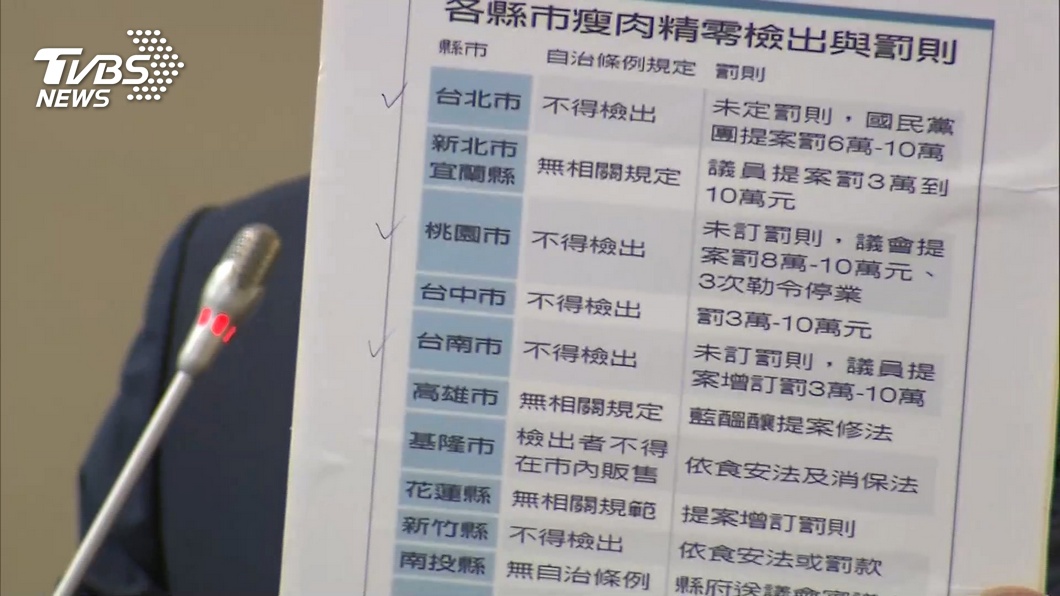 TVBS
NEWS
各縣市瘦肉精零檢出與罰則
縣市 自治條例規定 罰則
台北市 不得檢出 未定罰則，國民黨
團提案罰6萬-10萬
新北市
宜蘭縣 無相關規定 議員提案罰3萬到
10萬元
桃園市 不得檢出 未訂罰則，議會提
案罰8萬-10萬元、
3次勒令停業
台中市 不得檢出 罰3萬-10萬元
台南市 不得檢出 未訂罰則，議員提
案增訂罰3萬-10萬
高雄市 無相關規定 藍醞釀提案修法
基隆市 檢出者不得
在市內販售 依食安法及消保法
花蓮縣 無相關規範 提案增訂罰則
新竹縣 不得檢出 依食安法或罰款
南投縣 無自治條例 縣府送議會審議